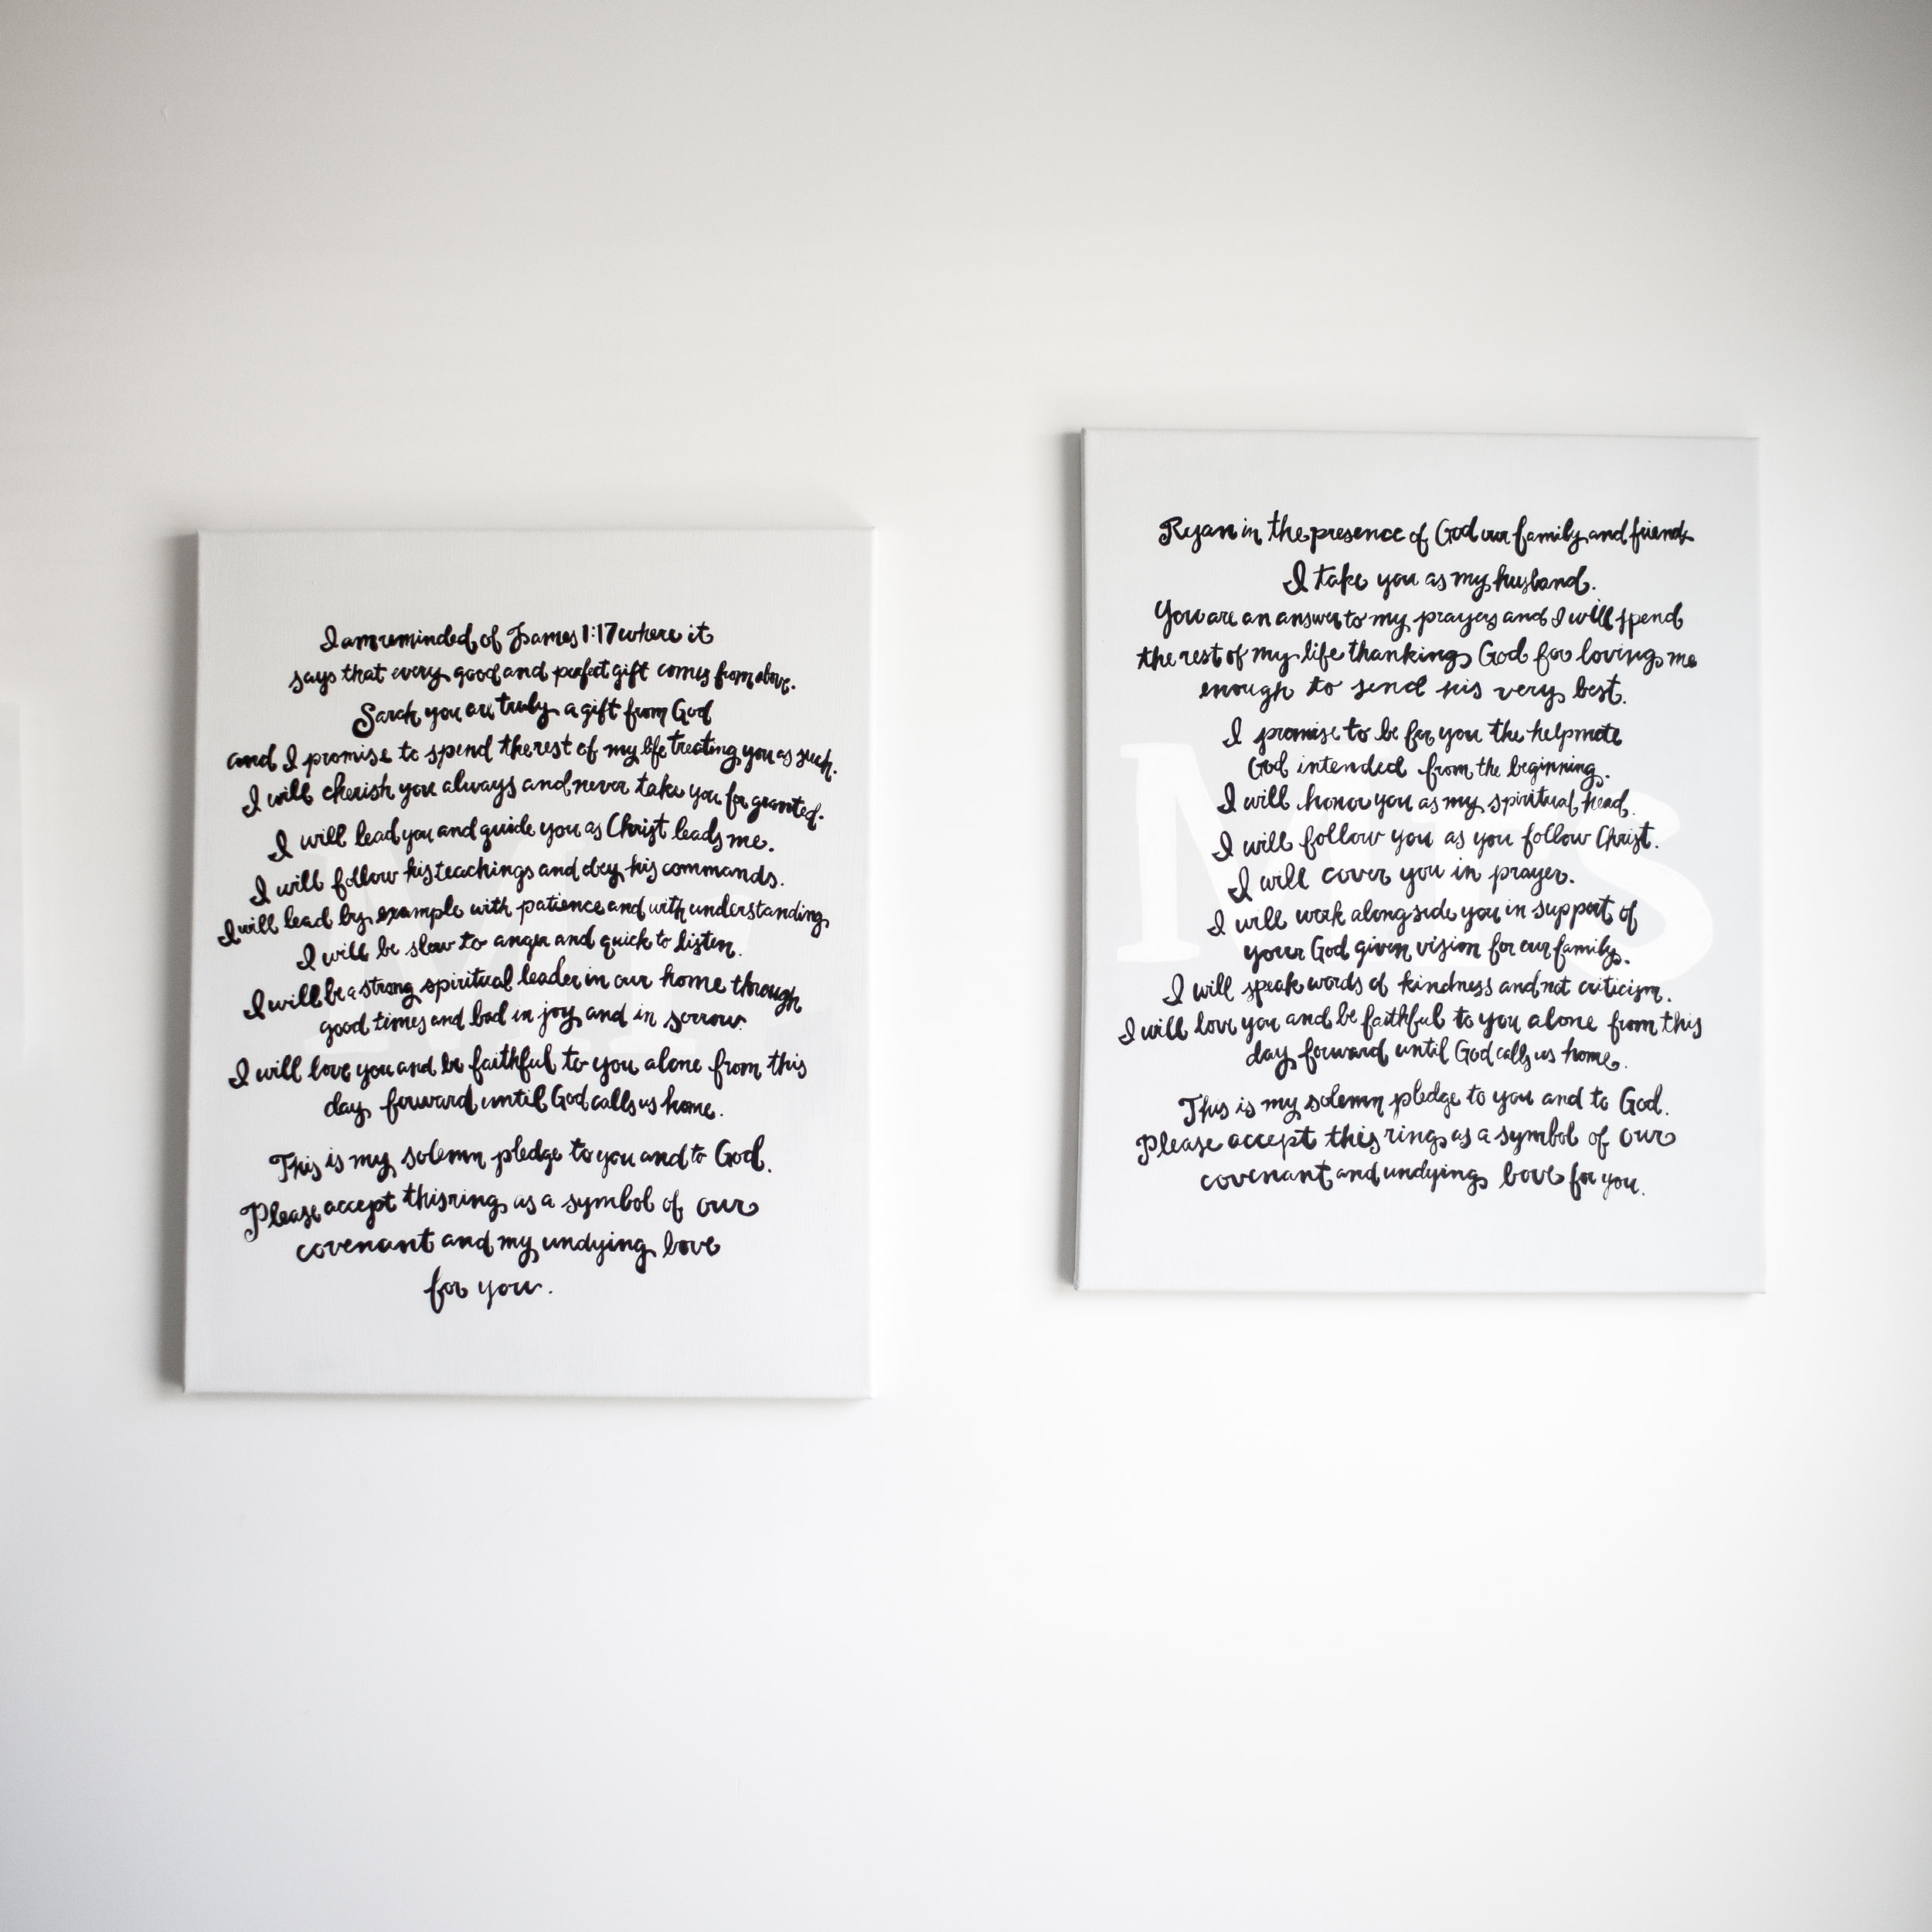 I am reminded of James 1:17 where it
says that every good and perfect gift comes from above.
Sarah you are truly a gift from God
and I promise to spend the rest of my life treating you as such.
I will cherish you always and never take you for granted.
I will lead you and guide you as Christ leads me.
I will follow his teachings and obey his commands.
I will lead by example with patience and with understanding
I will be slow to anger and quick to listen.
I will be a strong spiritual leader in our home through
good times and bad in joy and in sorrow.
I will love you and be faithful to you alone from this
day forward until God calls us home.
This is my solemn pledge to you and to God.
Please accept this ring as a symbol of our
covenant and my undying love
for you.
Mr
Ryan in the presence of God our family and friends
I take you as my husband.
You are an answer to my prayers and I will spend
the rest of my life thanking God for loving me
enough to send his very best.
I promise to be for you the helpmate
God intended from the beginning.
I will honor you as my spiritual head.
I will follow you as you follow Christ.
I will cover you in prayer.
I will work alongside you in support of
your God given vision for our family.
I will speak words of kindness and not criticism.
I will love you and be faithful to you alone from this
day forward until God calls us home.
This is my solemn pledge to you and to God.
Please accept this ring as a symbol of our
covenant and undying love for you.
Mrs